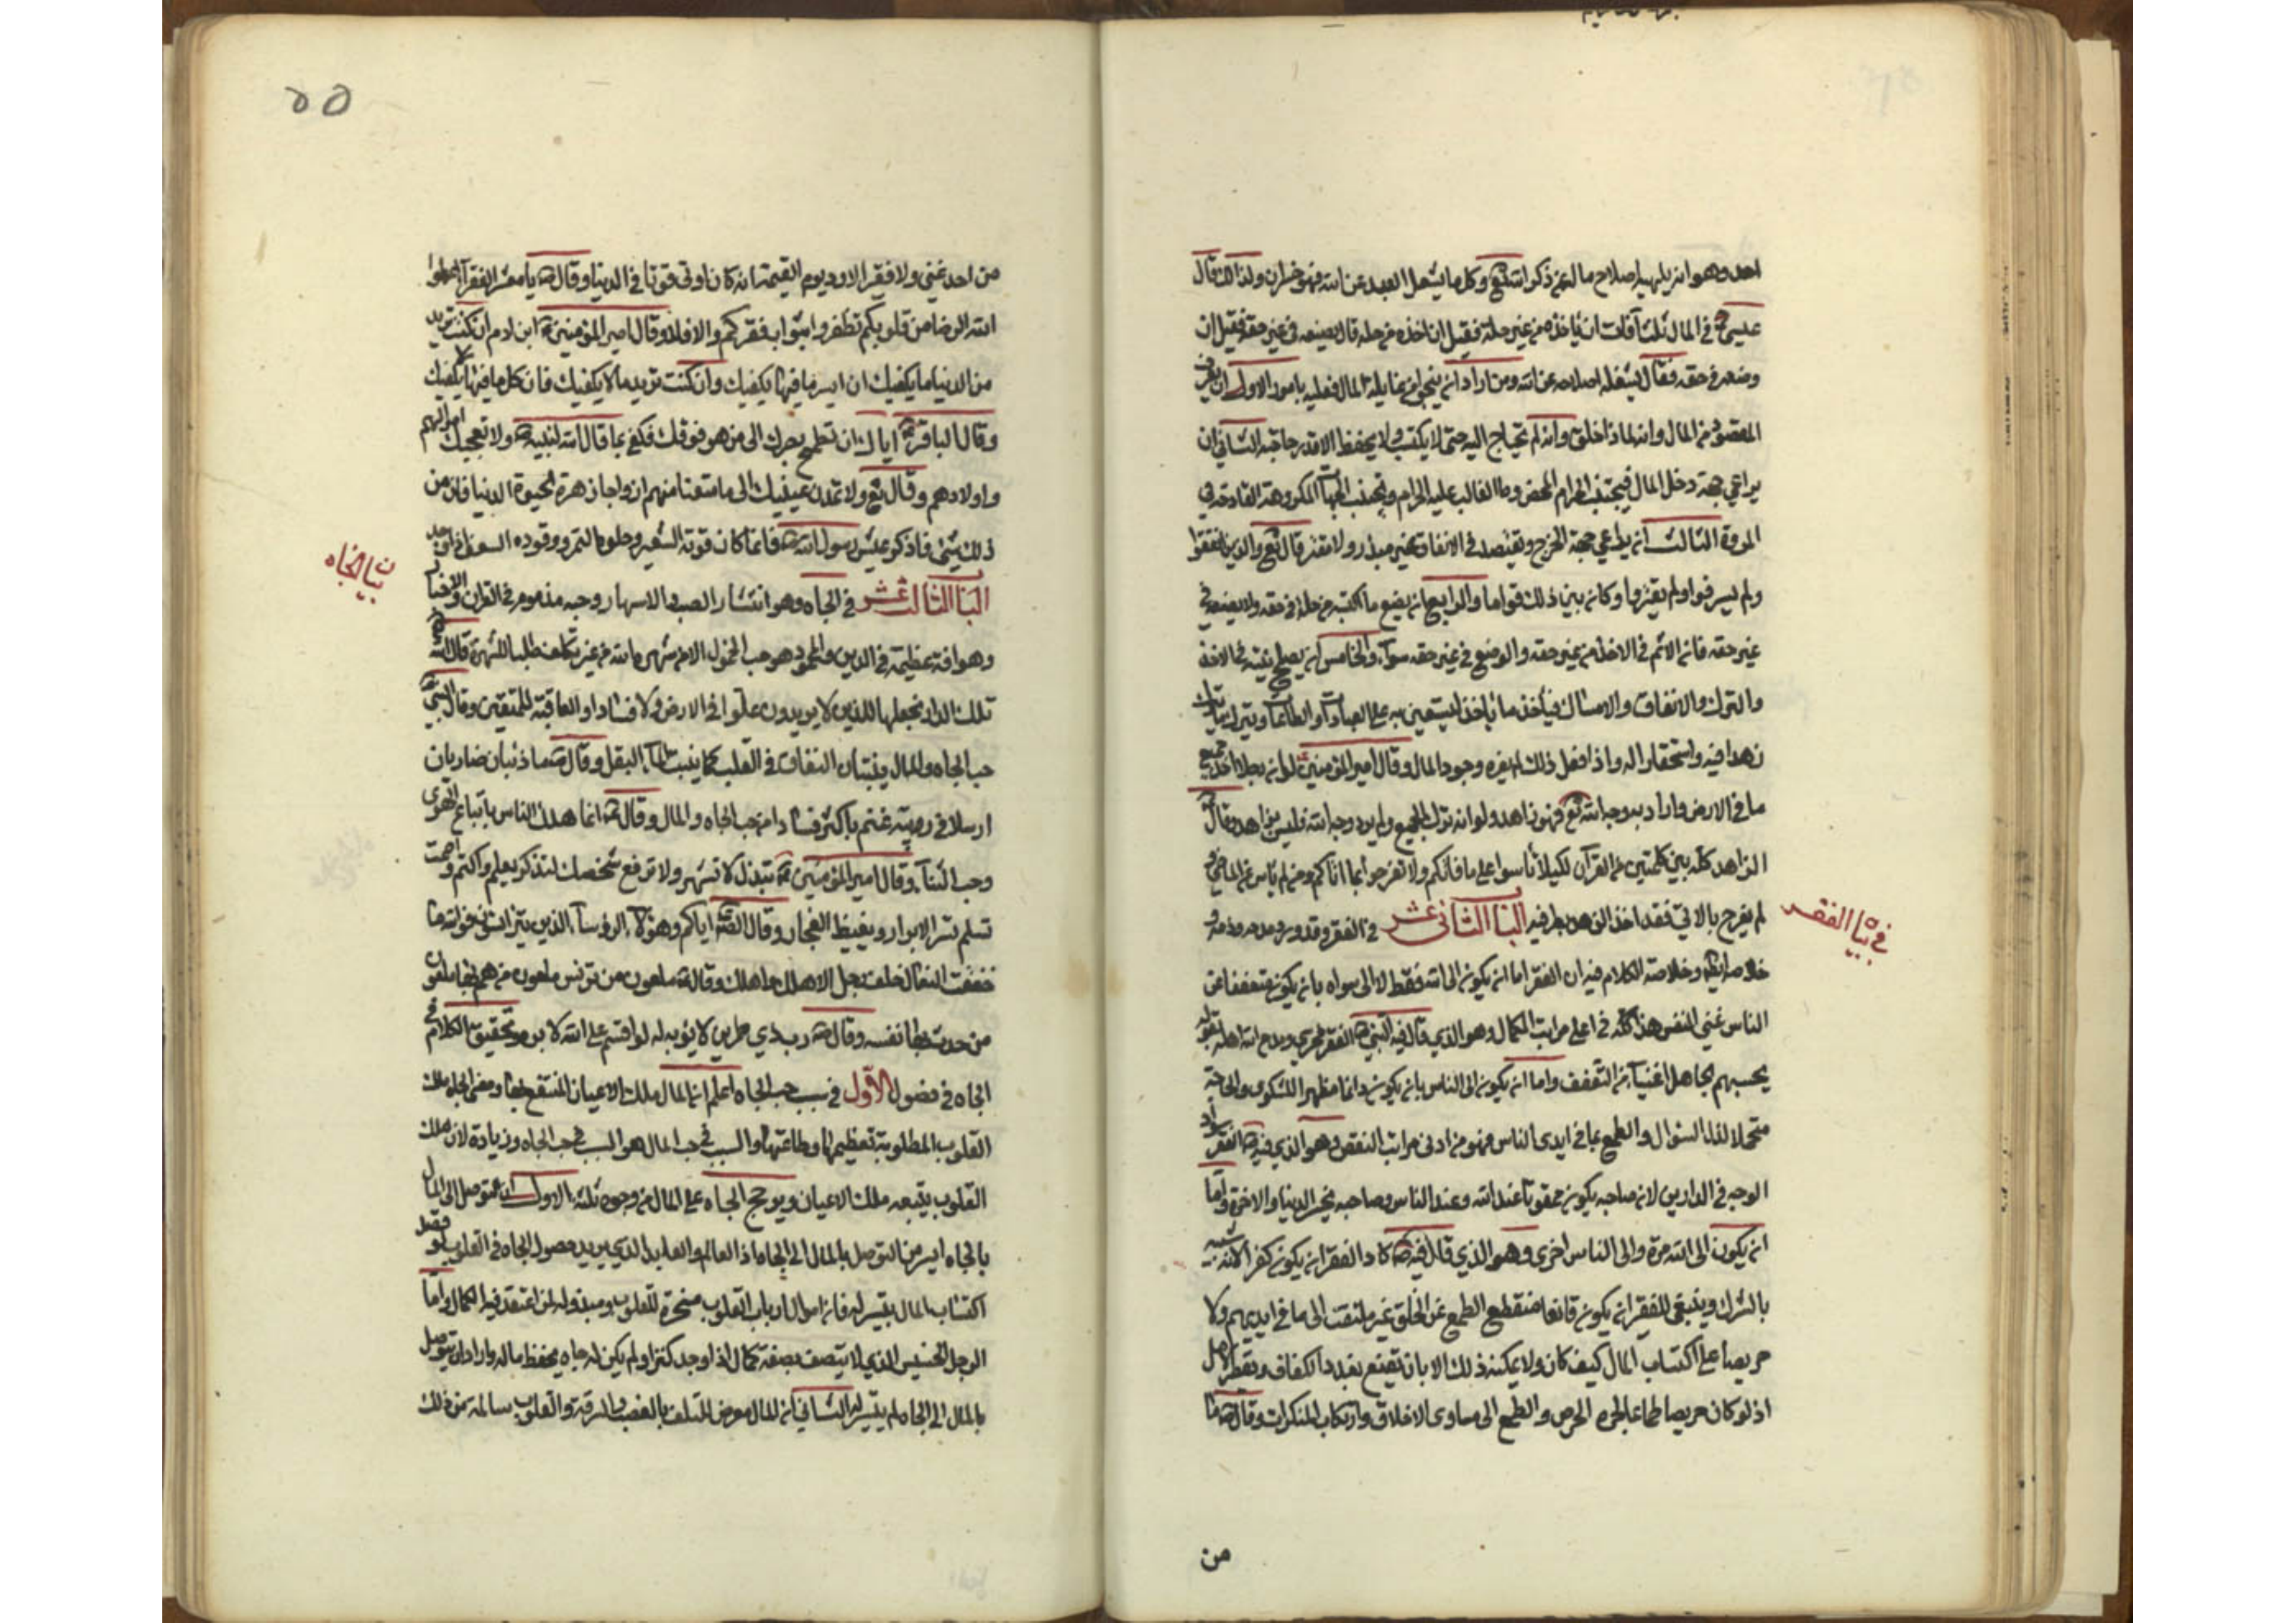 احد وهو انه يلهيه اصلاح ماله عن ذكر الله تع وكل ما يشغل العبد عن الله فهو خسران ولذلك قال
عيسى ع في المال ثلث آفات ان ياخذه من غير حله فقيل ان اخذه من حله قال يضعه في غير حقه فقيل ان
وضعه في حقه فقال يشغله اصلاحه عن الله ومن اراد ان ينجو من غايلة المال فعليه بامور الاول ان يعرف
المقصود من المال وانه لماذا خلق وانه لم يحتاج اليه حتى لا يكتسب ولا يحفظ الا قدر حاجته الثاني ان
يراعي جهة دخل المال فيجتنب الحرام المحض وما الغالب عليه الحرام ويجتنب الجهات المكروهة القادحة في
المروة الثالث ان يراعي جهة الخرج ويقتصد في الانفاق غير مبذر ولا مقتر قال تع والذين اذا انفقوا
ولم يسرفوا ولم يقتروا وكان بين ذلك قواما والرابع ان يضع ما اكتسبه من حله في حقه ولا يضعه في
غير حقه فان الاثم في الاخذ من غير حقه والوضع في غير حقه سوآء والخامس ان يصلح نيته في الاخذ
والترك والانفاق والامساك فيأخذ ما ياخذ ليستعين به على العبادات والطاعات ويترك ما يترك
زهدا فيه واستحقارا له واذا فعل ذلك لم يضره وجود المال وقال امير المؤمنين ع لو ان رجلا اخذ جميع
ما في الارض واراد به وجه الله تع فهو زاهد ولو انه ترك الجميع ولم يرد وجه الله فليس بزاهد وقال ع
الزاهد كله بين كلمتين من القرآن لكيلا تأسوا على ما فاتكم ولا تفرحوا بما اتاكم ومن لم ياس على الماضي و
لم يفرح بالاتي فقد اخذ الزهد بطرفيه البا الثاني عشر في الفقر وقد ورد مدحه وذمه و
في بيا الفقر
خلاصة الكلام فيه ان الفقر اما ان يكون الى الله فقط لا الى سواه بان يكون متعففا عن
الناس غني النفس هذا كله في اعلى مراتب الكمال وهو الذي قال فيه النبي ص الفقر فخري ومدح الله اهله بقوله
يحسبهم الجاهل اغنيآء من التعفف واما ان يكون الى الناس بان يكون دائما مظهرا للشكوى والحاجة
متحملا لذل السؤال والطمع بما في ايدى الناس فهو من ادنى مراتب النقص وهو الذي فيه ص الفقر سواد
الوجه في الدارين لان صاحبه يكون ممقوتا عند الله وعند الناس وصاحبه يخسر الدنيا والاخرة واما
ان يكون الى الله مرة والى الناس اخرى وهو الذي قال فيه ص كاد الفقر ان يكون كفرا لانه شبيه
بالشرك وينبغي للفقير ان يكون قانعا منقطع الطمع عن الخلق غير ملتفت الى ما في ايديهم ولا
حريصا على اكتساب المال كيف كان ولا يمكنه ذلك الا بان يقنع بقدر الكفاف ويقطع الامل
اذ لو كان حريصا طماعا لجره الحرص والطمع الى مساوى الاخلاق وارتكاب المنكرات وقال ص ما
من
٥٥
من احد غني ولا فقير الا ود يوم القيمة انه كان اوتى قوتا في الدنيا وقال ص يا معشر الفقرآء اعطوا
الله الرضا من قلوبكم تظفروا بثواب فقركم والا فلا وقال امير المؤمنين ع ابن ادم ان كنت تريد
من الدنيا ما يكفيك فان ايسر ما فيها يكفيك وان كنت تريد ما لا يكفيك فان كل ما فيها لا يكفيك
وقال الباقر ع اياك ان تطمح بصرك الى من هو فوقك فكفى بما قال الله لنبيه ص ولا تعجبك اموالهم
واولادهم وقال تع ولا تمدن عينيك الى ما متعنا منهم ازواجا زهرة الحيوة الدنيا فان من
ذلك شئ فاذكر عيش رسول الله ص فانما كان قوته الشعير وحلوه التمر ووقوده السعف اذا وجد
البا الثالث عشر في الجاه وهو انتشار الصيت والاسهار وحبه مذموم في القران والاخبار
بيان الجاه
وهو افة عظيمة في الدين والمحمود هو حب الخمول الا من شهره الله من غير تكلف طلبا للشهرة قال الله
تلك الدار نجعلها للذين لا يريدون علوا في الارض ولا فسادا والعاقبة للمتقين وقال النبي ص
حب الجاه والمال ينبتان النفاق في القلب كما ينبت المآء البقل وقال ص ما ذئبان ضاريان
ارسلا في زريبة غنم باكثر فسادا من حب الجاه والمال وقال ص انما هلك الناس باتباع الهوى
وحب الثنآء وقال امير المؤمنين ع تبذل لا تشهر ولا ترفع شخصك لتذكر بعلم واكتم واصمت
تسلم تسر الابرار وتغيظ الفجار وقال الص اياكم وهؤلآء الرؤسآء الذين يتراسون فوالله ما
خفقت النعال خلف رجل الا هلك واهلك وقال ع ملعون من تراس ملعون من هم بها ملعون
من حدث بها نفسه وقال ص رب ذي طمرين لا يؤبه له لو اقسم على الله لابره وتحقيق الكلام في
الجاه في فصول الاول في سبب حب الجاه اعلم ان المال ملك الاعيان المنتفع بها ومعنى الجاه ملك
القلوب المطلوبة تعظيمها وطاعتها والسبب في حب المال هو السبب في حب الجاه وزيادة لان ملك
القلوب يتبعه ملك الاعيان ويرجح الجاه على المال من وجوه ثلثه الاول ان التوصل الى المال
بالجاه ايسر من التوصل بالمال الى الجاه اذ العالم والعابد الذي يريد حصول الجاه في القلوب لو قصد
اكتساب المال تيسر له فان اموال ارباب القلوب مسخرة للقلوب ومبذولة لمن اعتقد فيه الكمال واما
الرجل الخسيس الذي لا يتصف بصفة كمال اذا وجد كنزا ولم يكن له جاه يحفظ ماله واراد ان يتوصل
بالمال الى الجاه لم يتيسر له الثاني ان المال معرض للتلف بالغصب والسرقة والقلوب سالمة من ذلك